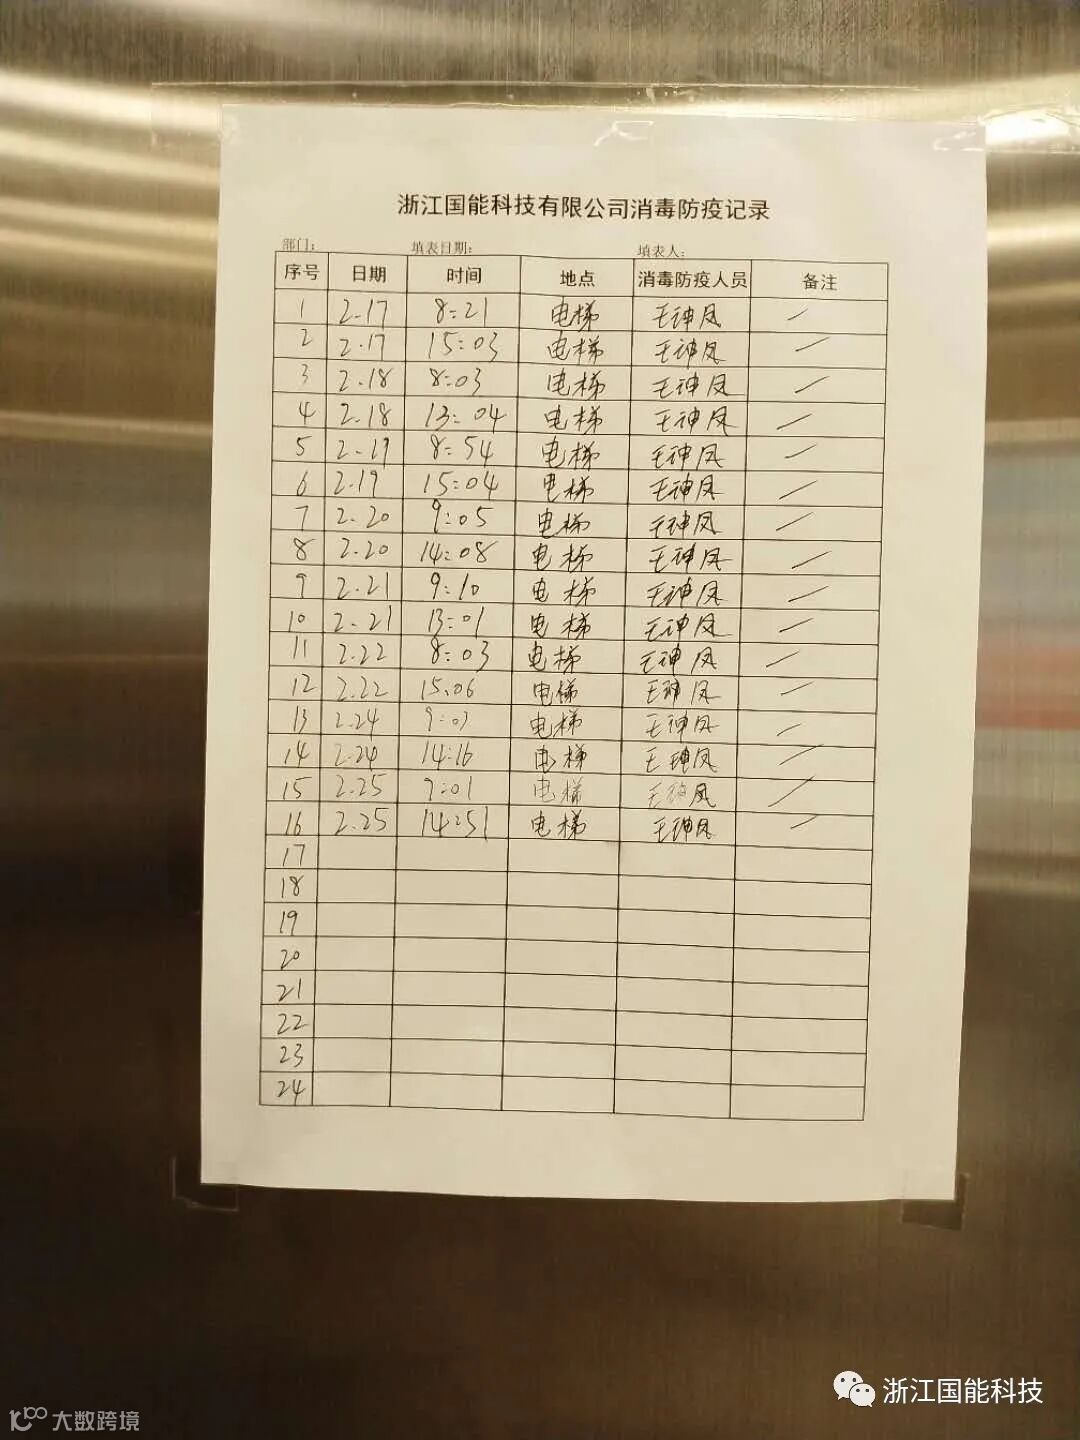 浙江国能科技有限公司消毒防疫记录
部门： 填表日期： 填表人：
序号 日期 时间 地点 消毒防疫人员 备注
1 2.17 8:21 电梯 王神凤 /
2 2.17 15:03 电梯 王神凤 /
3 2.18 8:03 电梯 王神凤 /
4 2.18 13:04 电梯 王神凤 /
5 2.19 8:54 电梯 王神凤 /
6 2.19 15:04 电梯 王神凤 /
7 2.20 9:05 电梯 王神凤 /
8 2.20 14:08 电梯 王神凤 /
9 2.21 9:10 电梯 王神凤 /
10 2.21 13:01 电梯 王神凤 /
11 2.22 8:03 电梯 王神凤 /
12 2.22 15:06 电梯 王神凤 /
13 2.24 9:03 电梯 王神凤 /
14 2.24 14:16 电梯 王神凤 /
15 2.25 9:01 电梯 王神凤 /
16 2.25 14:51 电梯 王神凤 /
17
18
19
20
21
22
23
24
浙江国能科技
大数跨境